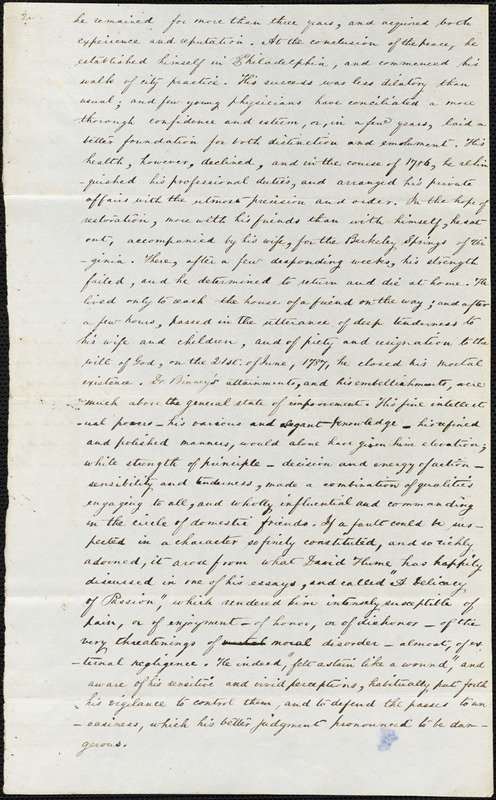 2.
he remained for more than three years, and acquired both
experience and reputation. At the conclusion of the peace, he
established himself in Philadelphia, and commenced his
walk of city practice. His success was less dilatory than
usual; and few young physicians have conciliated a more
thorough confidence and esteem, or, in a few years, laid a
better foundation for both distinction and emolument. His
health, however, declined, and in the course of 1786, he relin
-quished his professional duties, and arranged his private
affairs with the utmost precision and order. In the hope of
restoration, more with his friends than with himself, he set
out, accompanied by his wife, for the Berkeley Springs of Vir
-ginia. There, after a few desponding weeks, his strength
failed, and he determined to return and die at home. He
lived only to reach the house of a friend on the way; and after
a few hours, passed in the utterance of deep tenderness to
his wife and children, and of piety and resignation to the
will of God, on the 21st. of June, 1787, he closed his mortal
existence. Dr. Binney's attainments, and his embellishments, were
much above the general state of improvement. His fine intellect
-ual powers - his various and elegant knowledge - his refined
and polished manners, would alone have given him elevation;
while strength of principle - decision and energy of action -
sensibility and tenderness, made a combination of qualities
engaging to all, and wholly influential and commanding
in the circle of domestic friends. If a fault could be sus-
pected in a character so finely constituted, and so richly
adorned, it arose from what David Hume has happily
discussed in one of his essays, "and called "A Delicacy
of Passion", which rendered him intensely susceptible of
pain, or of enjoyment - of honor, or of dishonor - of the
very threatenings of moral disorder - almost, of ex
-ternal negligence. He indeed, "felt a stain like a wound," and
aware of his sensitive and vivid perceptions, habitually put forth
his vigilance to control them, and to defend the passes to un
-easiness, which his better judgment pronounced to be dan-
gerous.